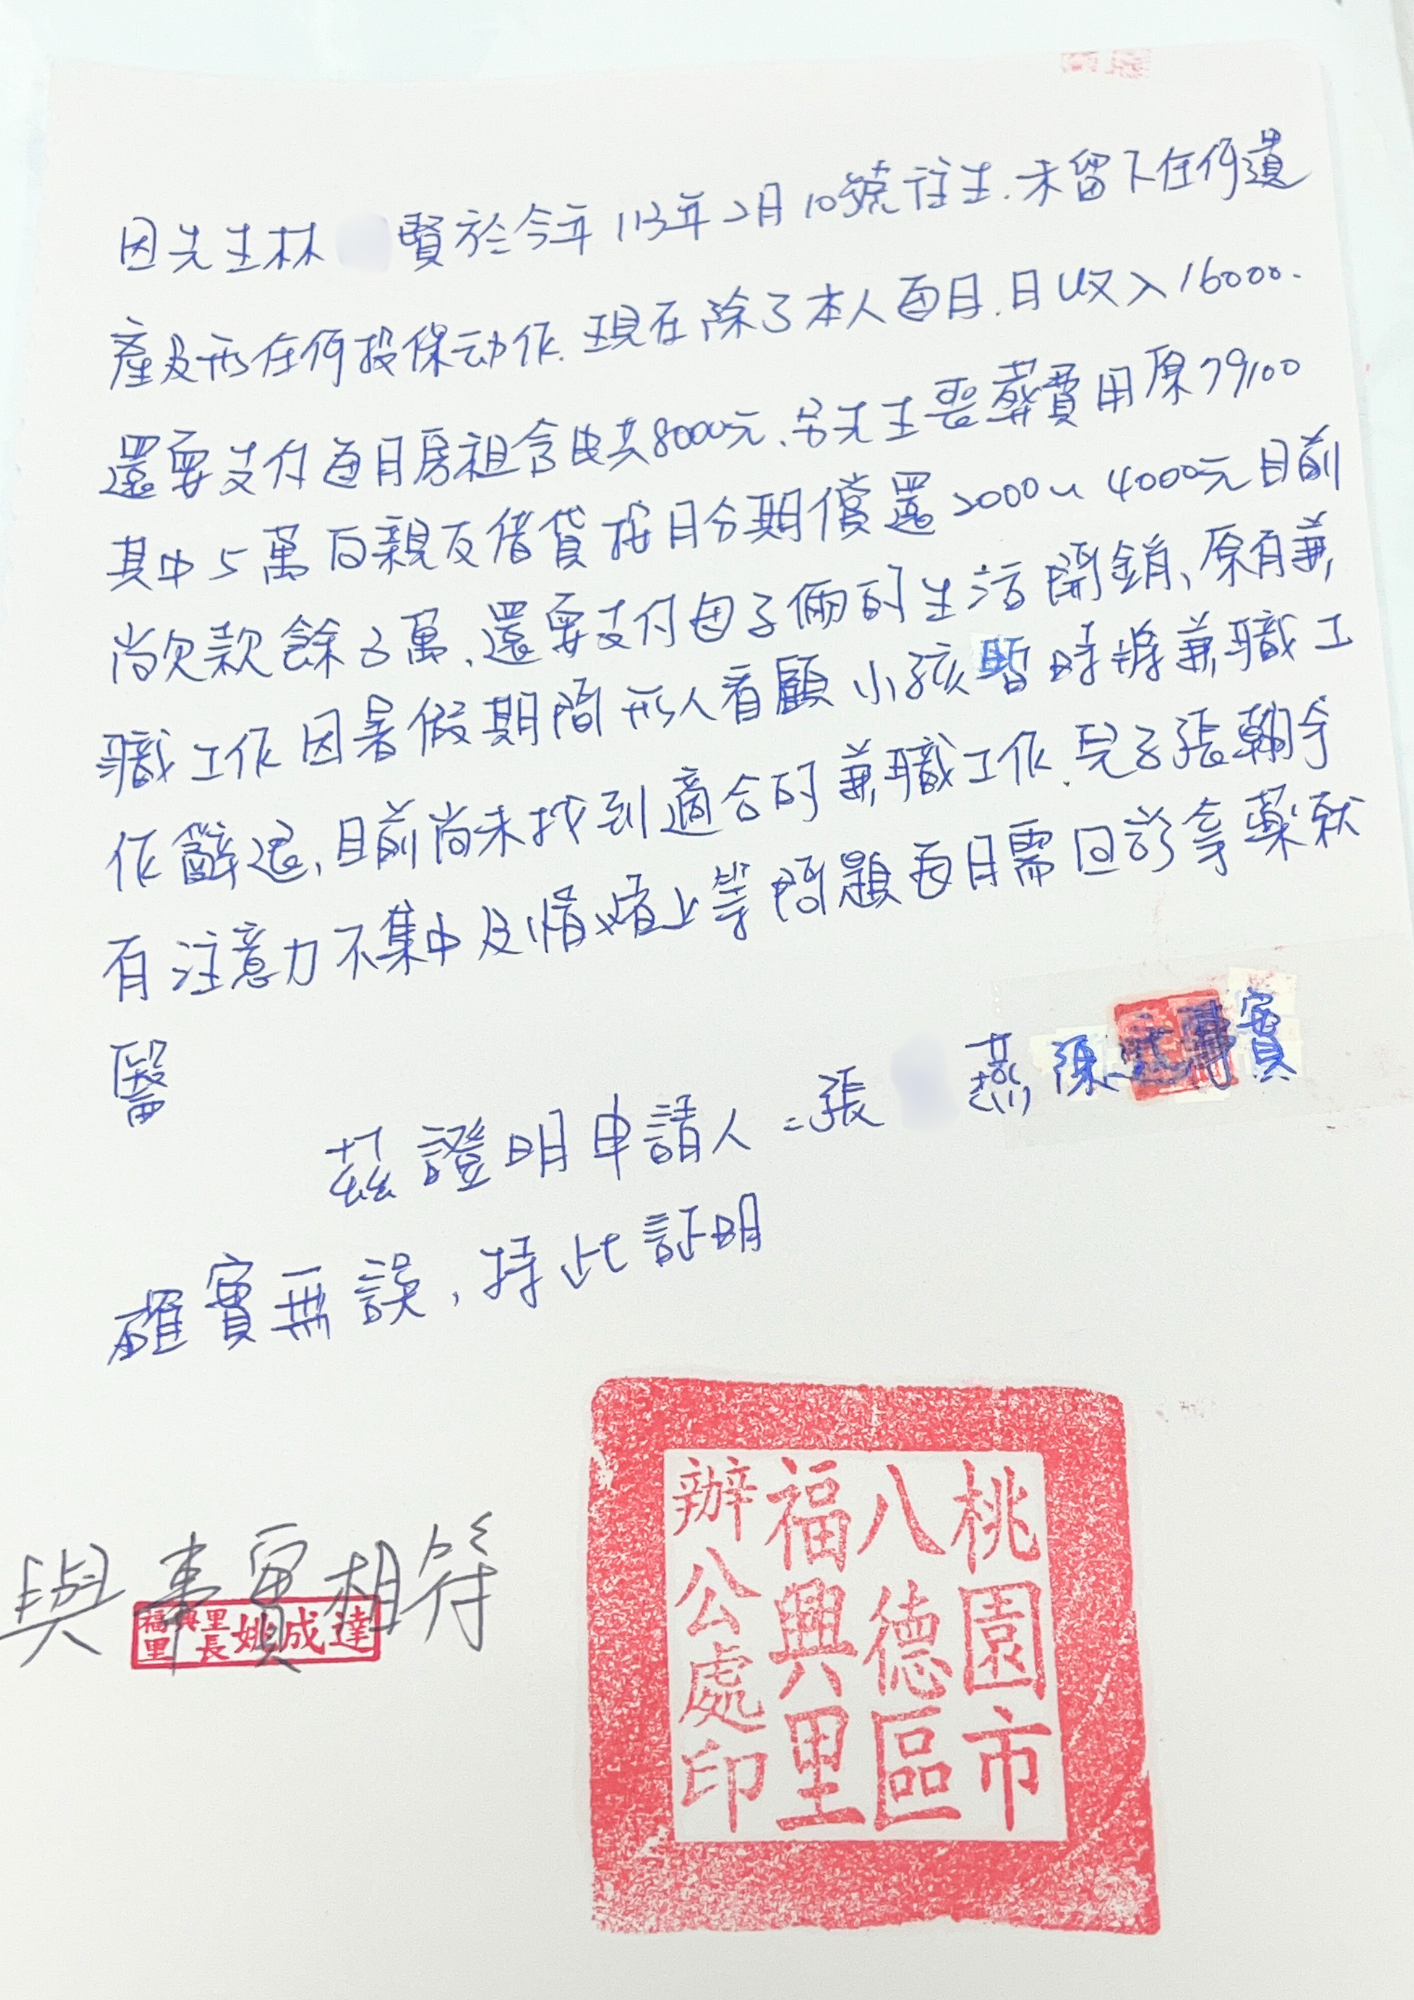 因先生林 賢於今年113年2月10號往生.未留下任何遺
產及 任何投保动作.現在除了本人每月.日收入16000.
還要支付每月房租含 共8000元、另先生喪葬費用原79100
其中5萬向親友借貸按月分期償還2000~4000元目前
尚欠款餘 萬、還要支付母子倆的生活開銷、原有兼
職工作因暑假期間 人看顧小孩暫時將兼職工
作辭退,目前尚未找到適合的兼職工作.兒子張翰
有注意力不集中及情緒上等問題每月需回診拿藥就
醫
茲證明申請人=張 燕陳 寶
確實無誤,持此証明
與事實相符
福興里里長姚成達
桃園市
八德區
福興里
辦公處印